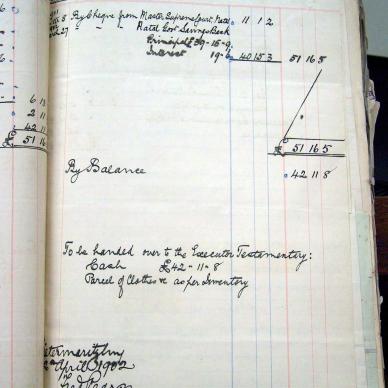 8 By Cheque from Master Supreme Court, Natal 11 1 2
27 " Natal Govt Savings Bank
Principal £39-15-9
Interest 19-6 40 15 3 51 16 5
6
2
42 11
£ 51 16
£ 51 16 5
By Balance 42 11 8
To be handed over to the Executor Testamentary:
Cash £42-11-8
Parcel of Clothes &c as per Inventory
April 1902